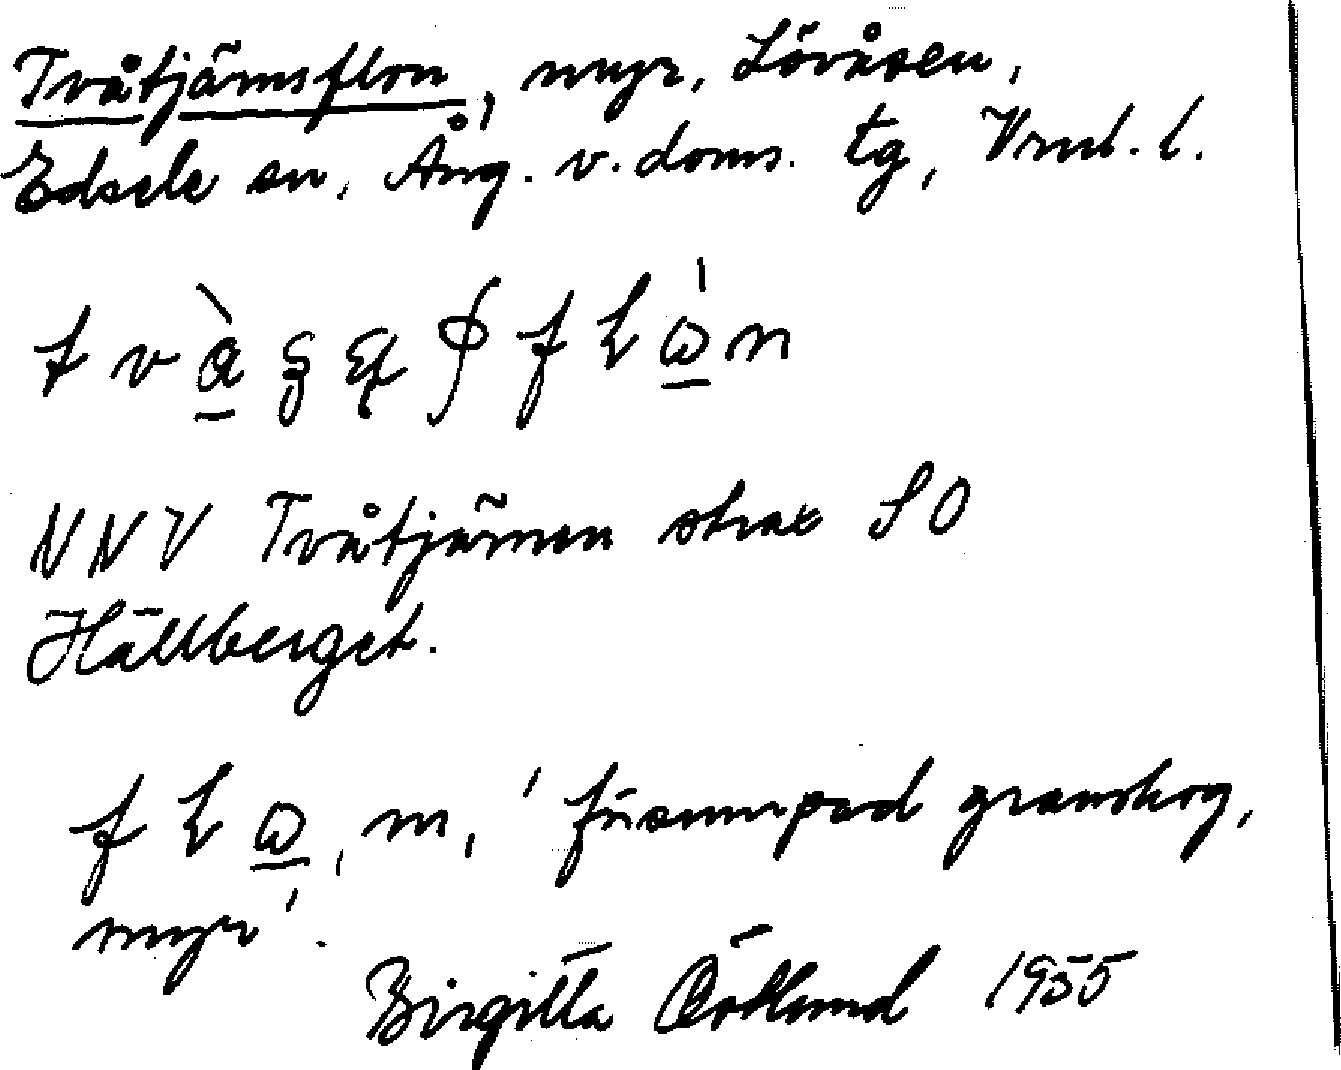 Tvåtjärnsflon, myr, Lövåsen,
Edsele sn, Ång. v. doms. tg, Vrml. l.
NNV Tvåtjärnen strax SO
Hällberget.
m, 'försumpad granskog,
myr'.
Birgitta Östlund 1955